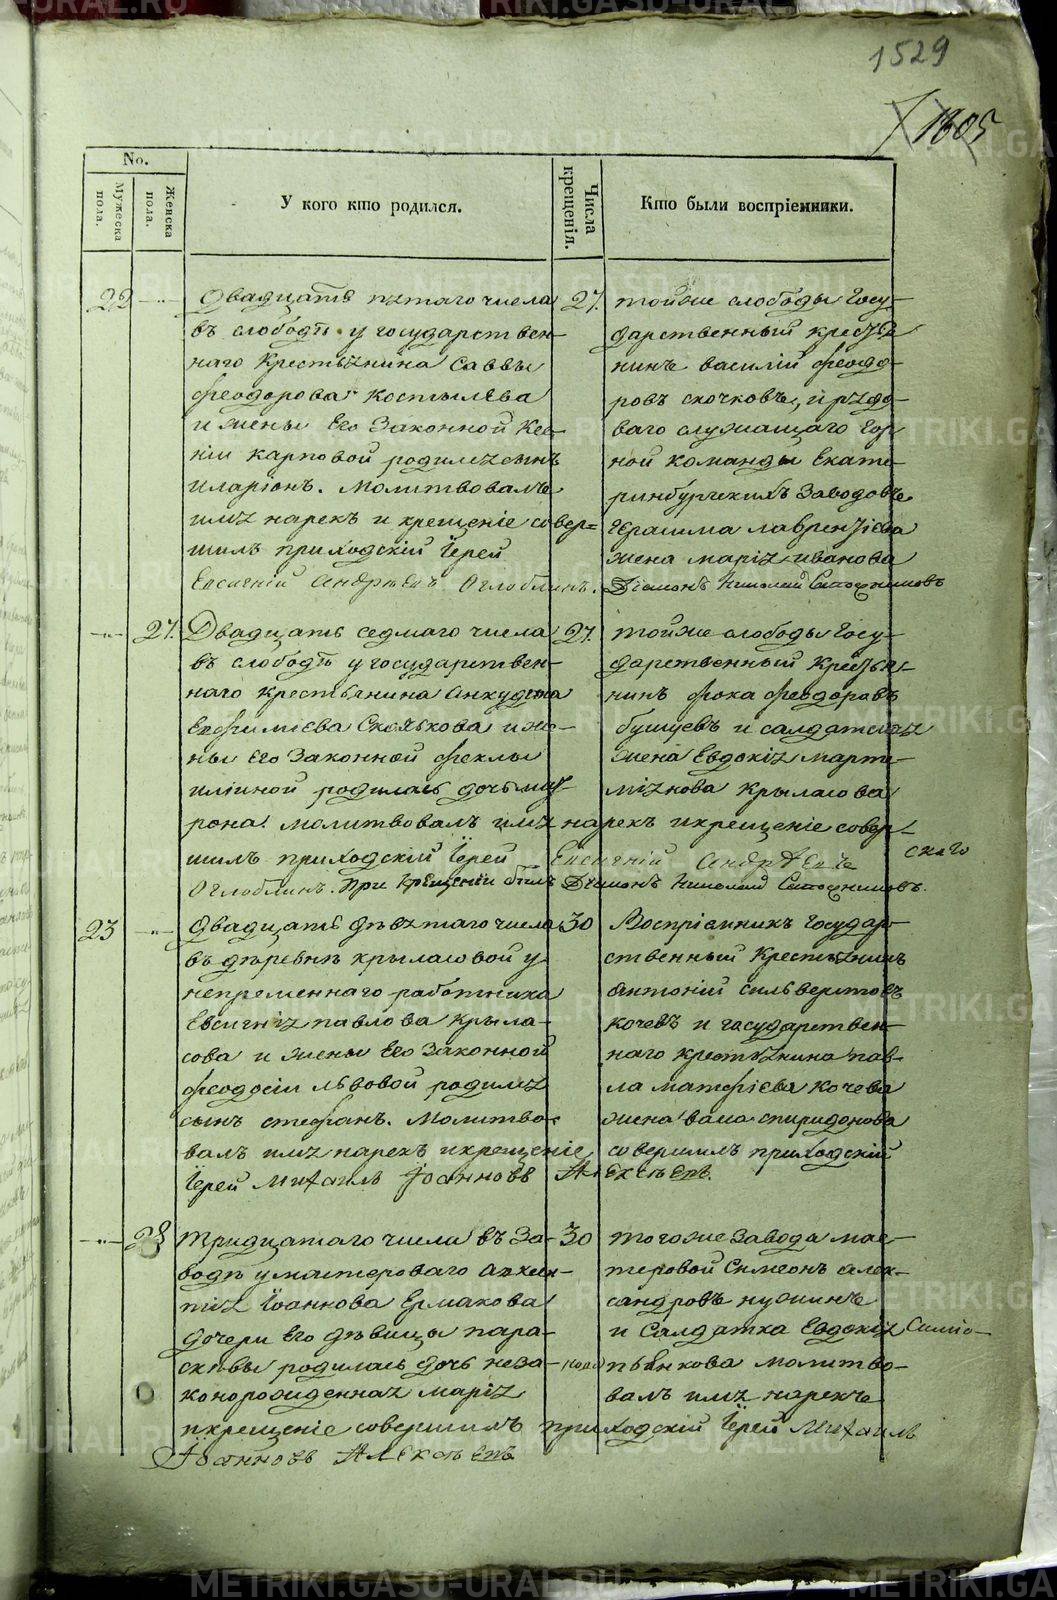 1529
1805
No.
Мужеска пола.
Женска пола.
У кого кто родился.
Числа крещенія.
Кто были воспріемники.
22
Двадцать пятаго числа
въ слободѣ у государствен-
наго крестьянина Саввы
Феодорова Костылева
и жены Его Законной Ксе-
ніи Карповой родился сынъ
Иларіонъ. Молитвовалъ
имя нарекъ и крещеніе совер=
шилъ приходскій Іерей
Евсигній Андреевъ Оглоблинъ.
27.
тойже слободы Госу-
дарственный крестья
нинъ василій Феодо-
ровъ скочковъ, и рядо-
ваго служащаго Гор
ной команды Екате-
ринбургскихъ Заводовъ
Герасима лаврентіева
жена марія иванова
Діаконъ Николай Сапожниковъ
27.
Двадцать седмаго числа
въ слободѣ у государствен-
наго крестьянина Анкудина
Евфиміева Сколькова и же-
ны Его Законной Феклы
илійной родилась дочь мат-
рона. молитвовалъ имя нарекъ и крещеніе совер-
шилъ приходскій Іерей Евсигній Андреевъ
Оглоблинъ. При крещеніи былъ Діаконъ Николай Сапожниковъ.
27.
тойже слободы Госу-
дарственный крестья-
нинъ Фока Феодоровъ
бушуевъ и салдатская
жена Евдокія марте-
міянова Крыласова
скаго
23
Двадцать девятаго числа
въ деревнѣ крыласовой у
непременнаго работника
Евсигнія павлова Крыла-
сова и жены Его Законной
Феодосіи львовой родился
сынъ стефанъ. Молитво-
валъ имя нарекъ и крещеніе совершилъ приходскій
Іерей Михаилъ Іоанновъ Алексѣевъ.
30
Воспріемникъ Государ-
ственный Крестьянинъ
Антоній сильверстовъ
кочевъ и государствен-
наго крестьянина пав-
ла матфіева Кочева
жена васса спиридонова
28
тридцатаго числа въ за-
водѣ у мастероваго Авксен-
тія Іоаннова Ермакова
дочери Его девицы пара-
скевы родилась дочь неза-
конорожденная марія
и крещеніе совершилъ приходскій Іерей Михаилъ
Іоанновъ Алексѣевъ
30
тогоже завода мас-
теровой Симеонъ алек-
сандровъ нужинъ
и Салдатка Евдокія Симео-
нова пьянкова молитво-
валъ имя нарекъ
METRIKI.GASO-URAL.RU